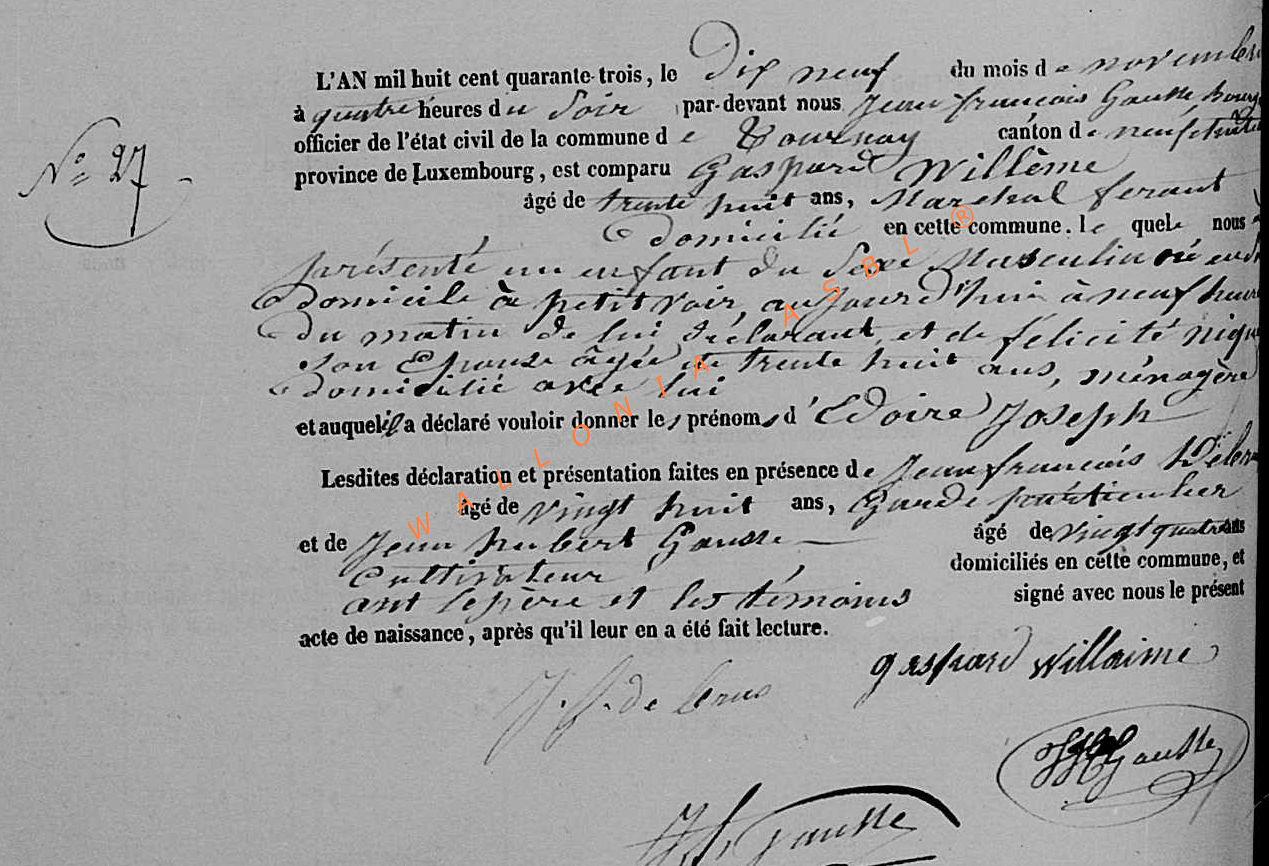 L'AN mil huit cent quarante-trois, le Dix neuf du mois de novembre
à quatre heures du Soir par-devant nous Jean françois Gausse
officier de l'état civil de la commune de Tournay canton de
province de Luxembourg, est comparu Gaspard Willême
Nº 27
âgé de trente huit ans, Marechal ferant
Domicilié en cette commune. le quel nous
présenté un enfant du Sexe Masculin né
Domicile à petitvoir, aujourd'hui à neuf heure
du matin de lui déclarant, et de félicité
son Epouse âgée de trente huit ans, ménagère
Domicilié avec lui
et auquel il a déclaré vouloir donner les prénoms d'Edoire Joseph
Lesdites déclaration et présentation faites en présence de Jean françois
âgé de vingt huit ans, Garde particulier
et de Jean hubert Gausse âgé de vingt quatre ans
Cultivateur domiciliés en cette commune, et
ant le père et les témoins signé avec nous le présent
acte de naissance, après qu'il leur en a été fait lecture.
gaspard Willaime
J. f. de
Gausse
Gausse
WALLONIA ASBL ®